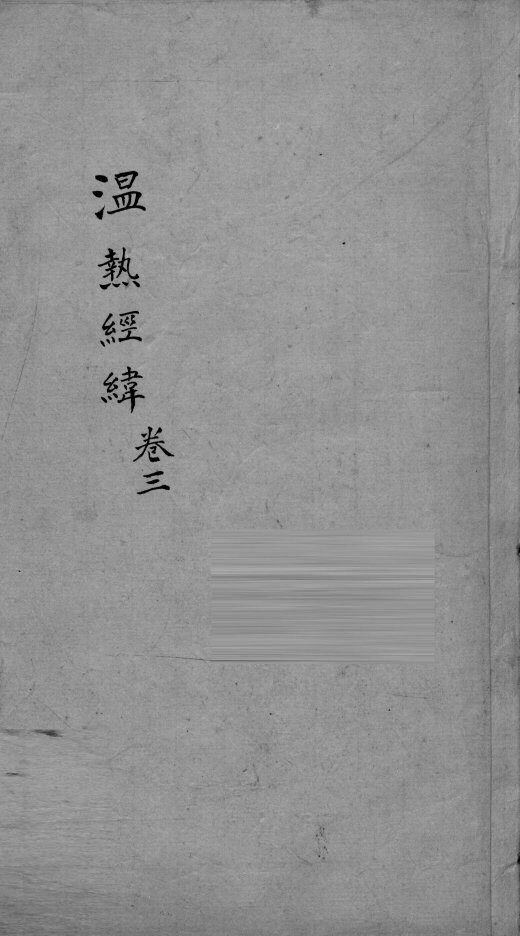 温熱經緯
卷三